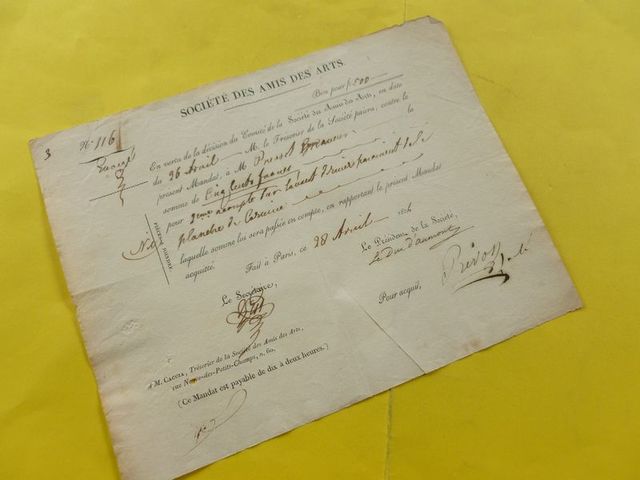 SOCIÉTÉ DES AMIS DES ARTS.
3
N.° 116
Bon pour f. 500
En vertu de la décision du Comité de la Société des Amis des Arts, en date
du 26 Avril M. le Trésorier de la Société paiera, contre le
présent Mandat, à M. Prevost Graveur la
somme de Cinq Cents francs
pour 2eme acompte sur
planche de Corinne
laquelle somme lui sera passée en compte, en rapportant le présent Mandat
acquitté.
Fait à Paris, ce 28 Avril 1826
Le Président de la Société,
Le Duc d'aumont
Le Secrétaire,
Pour acquit,
Prévost
A M. CACCIA, Trésorier de la Société des Amis des Arts,
rue Neuve-des-Petits-Champs, n. 60.
(Ce Mandat est payable de dix à deux heures.)